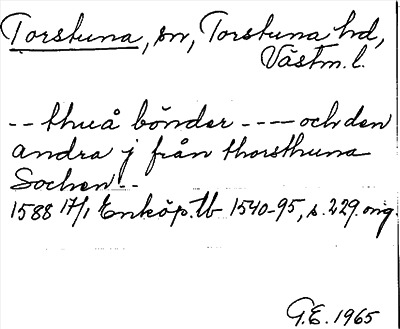 Torstuna, sn, Torstuna hd,
Västm. l.
-- thuå bönder ---- och den
andra j från thorsthuna
Sochen --
1588 17/1 Enköp. tb 1540-95, s. 229. orig.
G.E. 1965